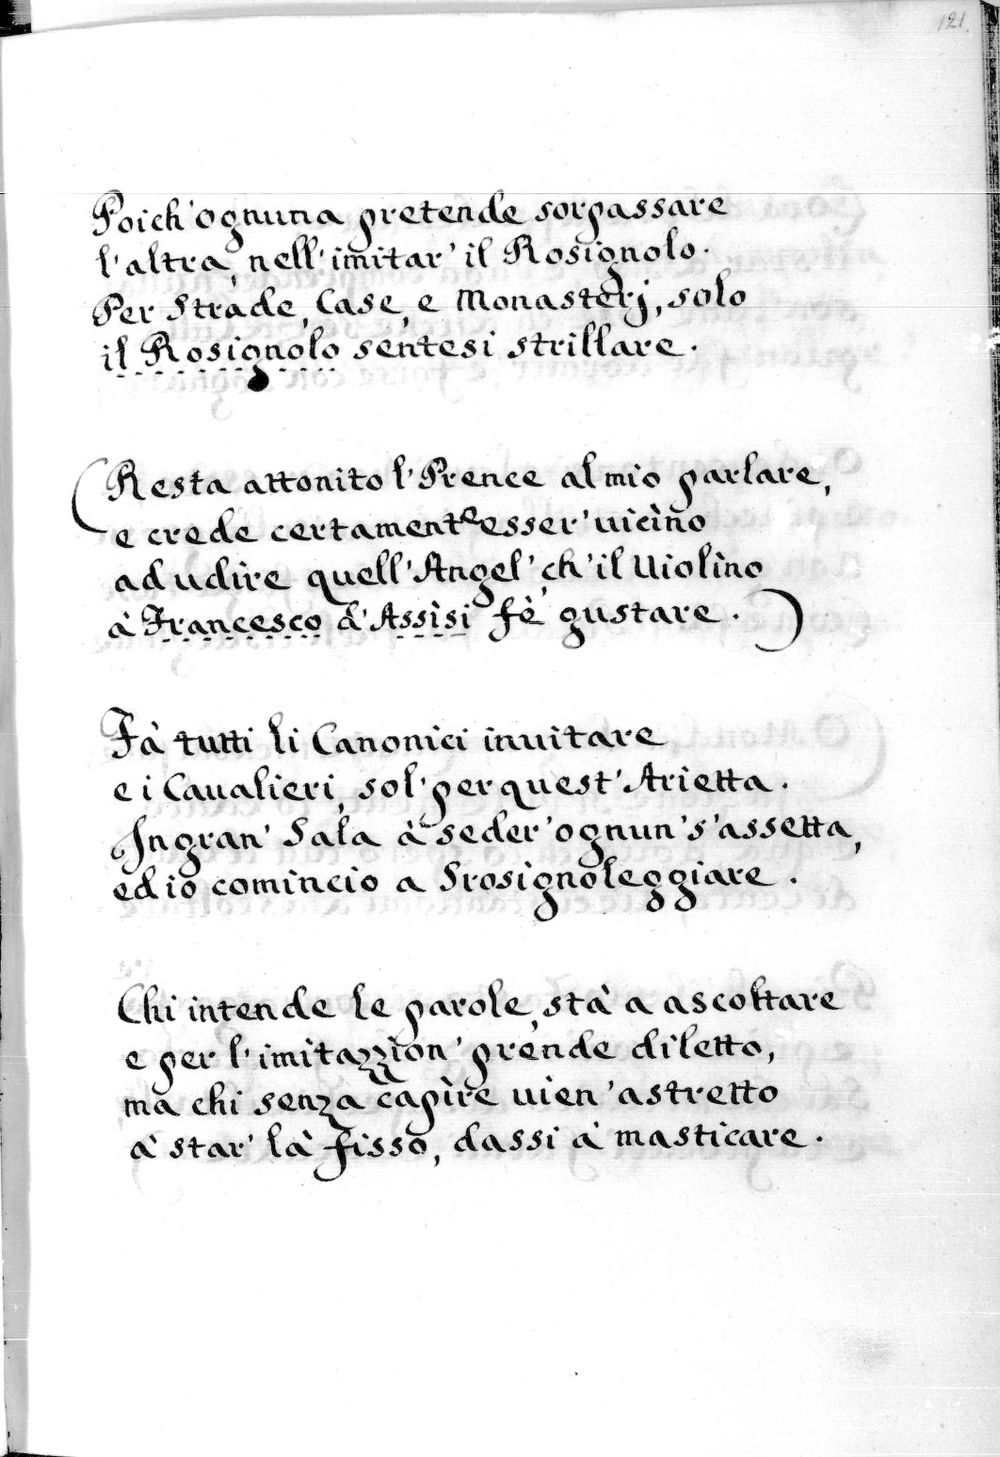 121
Poich' ognuna pretende sorpassare
l'altra nell'imitar' il Rosignolo.
Per Strade, Case, e Monasterj, solo
il Rosignolo sentesi strillare.
(Resta attonito l'Prence al mio parlare,
e crede certamente esser' uicino
ad udire quell'Angel', ch'il Uiolino
à Francesco d'Assisi fè gustare.)
Fà tutti li Canonici inuitare
e i Caualieri, sol' per quest'Arietta.
In gran' Sala à seder' ognun' s'assetta,
ed io comincio a Srosignoleggiare.
Chi intende le parole, stà a ascoltare
e per l'imitazzion' prende diletto,
ma chi senza capìre uien' astretto
à star' là fisso, dassi à masticare.